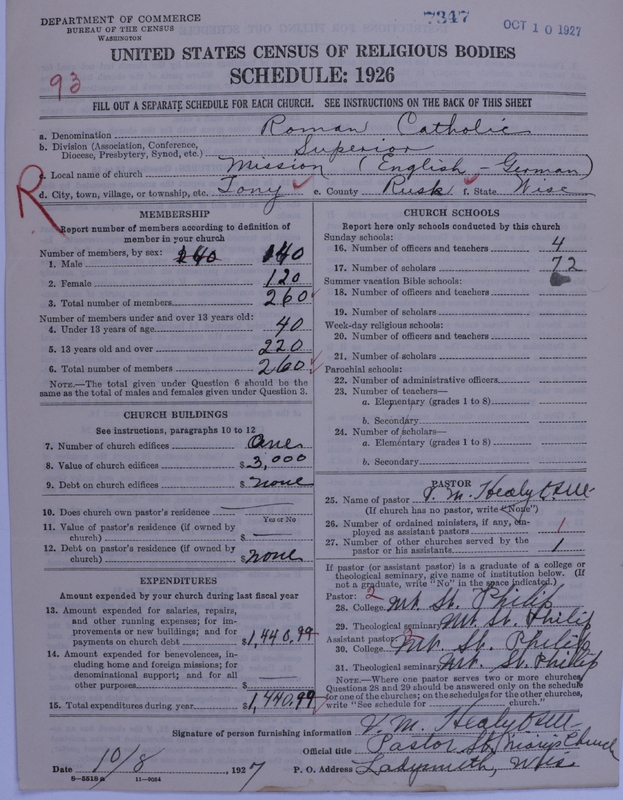 DEPARTMENT OF COMMERCE
BUREAU OF THE CENSUS
WASHINGTON
7347
OCT 10 1927
UNITED STATES CENSUS OF RELIGIOUS BODIES
SCHEDULE: 1926
93
FILL OUT A SEPARATE SCHEDULE FOR EACH CHURCH. SEE INSTRUCTIONS ON THE BACK OF THIS SHEET
a. Denomination Roman Catholic
b. Division (Association, Conference, Diocese, Presbytery, Synod, etc.) Superior
c. Local name of church Mission (English - German)
R
d. City, town, village, or township, etc. Tony e. County Rusk f. State Wisc
MEMBERSHIP
Report number of members according to definition of
member in your church
Number of members, by sex: 260
1. Male 140
2. Female 120
3. Total number of members 260
Number of members under and over 13 years old:
4. Under 13 years of age 40
5. 13 years old and over 220
6. Total number of members 260
NOTE.—The total given under Question 6 should be the
same as the total of males and females given under Question 3.
CHURCH BUILDINGS
See instructions, paragraphs 10 to 12
7. Number of church edifices One
8. Value of church edifices $3,000
9. Debt on church edifices $none
10. Does church own pastor's residence
Yes or No
11. Value of pastor's residence (if owned by
church) $
12. Debt on pastor's residence (if owned by
church) none
EXPENDITURES
Amount expended by your church during last fiscal year
13. Amount expended for salaries, repairs,
and other running expenses; for im-
provements or new buildings; and for
payments on church debt $1,440.99
14. Amount expended for benevolences, in-
cluding home and foreign missions; for
denominational support; and for all
other purposes $
15. Total expenditures during year $1,440.99
CHURCH SCHOOLS
Report here only schools conducted by this church
Sunday schools:
16. Number of officers and teachers 4
17. Number of scholars 72
Summer vacation Bible schools:
18. Number of officers and teachers
19. Number of scholars
Week-day religious schools:
20. Number of officers and teachers
21. Number of scholars
Parochial schools:
22. Number of administrative officers
23. Number of teachers—
a. Elementary (grades 1 to 8)
b. Secondary
24. Number of scholars—
a. Elementary (grades 1 to 8)
b. Secondary
PASTOR
25. Name of pastor V. M. Healy
(If church has no pastor, write "None")
26. Number of ordained ministers, if any, em-
ployed as assistant pastors 1
27. Number of other churches served by the
pastor or his assistants 1
If pastor (or assistant pastor) is a graduate of a college or
theological seminary, give name of institution below. (If
not a graduate, write "No" in the space indicated.)
Pastor: 2
28. College Mt St. Philip
29. Theological seminary Mt St. Philip
Assistant pastor:
30. College Mt. St. Philip
31. Theological seminary Mt. St. Philip
NOTE.—Where one pastor serves two or more churches,
Questions 28 and 29 should be answered only on the schedule
for one of the churches; on the schedules for the other churches,
write "See schedule for church."
Signature of person furnishing information V. M. Healy
Official title Pastor St. Mary's Church
Date 10/8, 1927 P. O. Address Ladysmith, Wis
8-5518a 11-9034